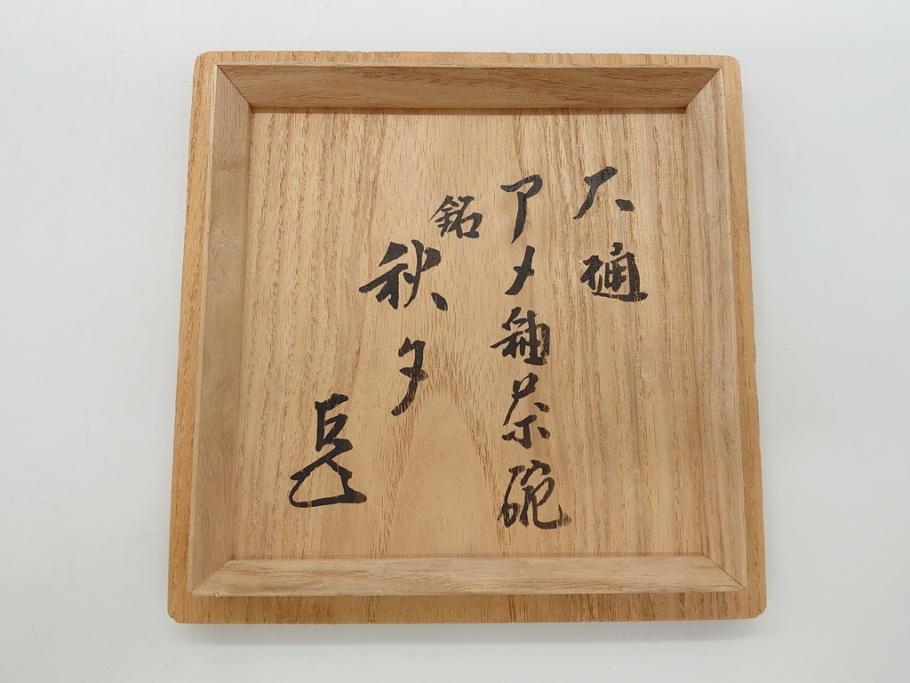 大樋
アメ釉茶碗
銘
秋夕